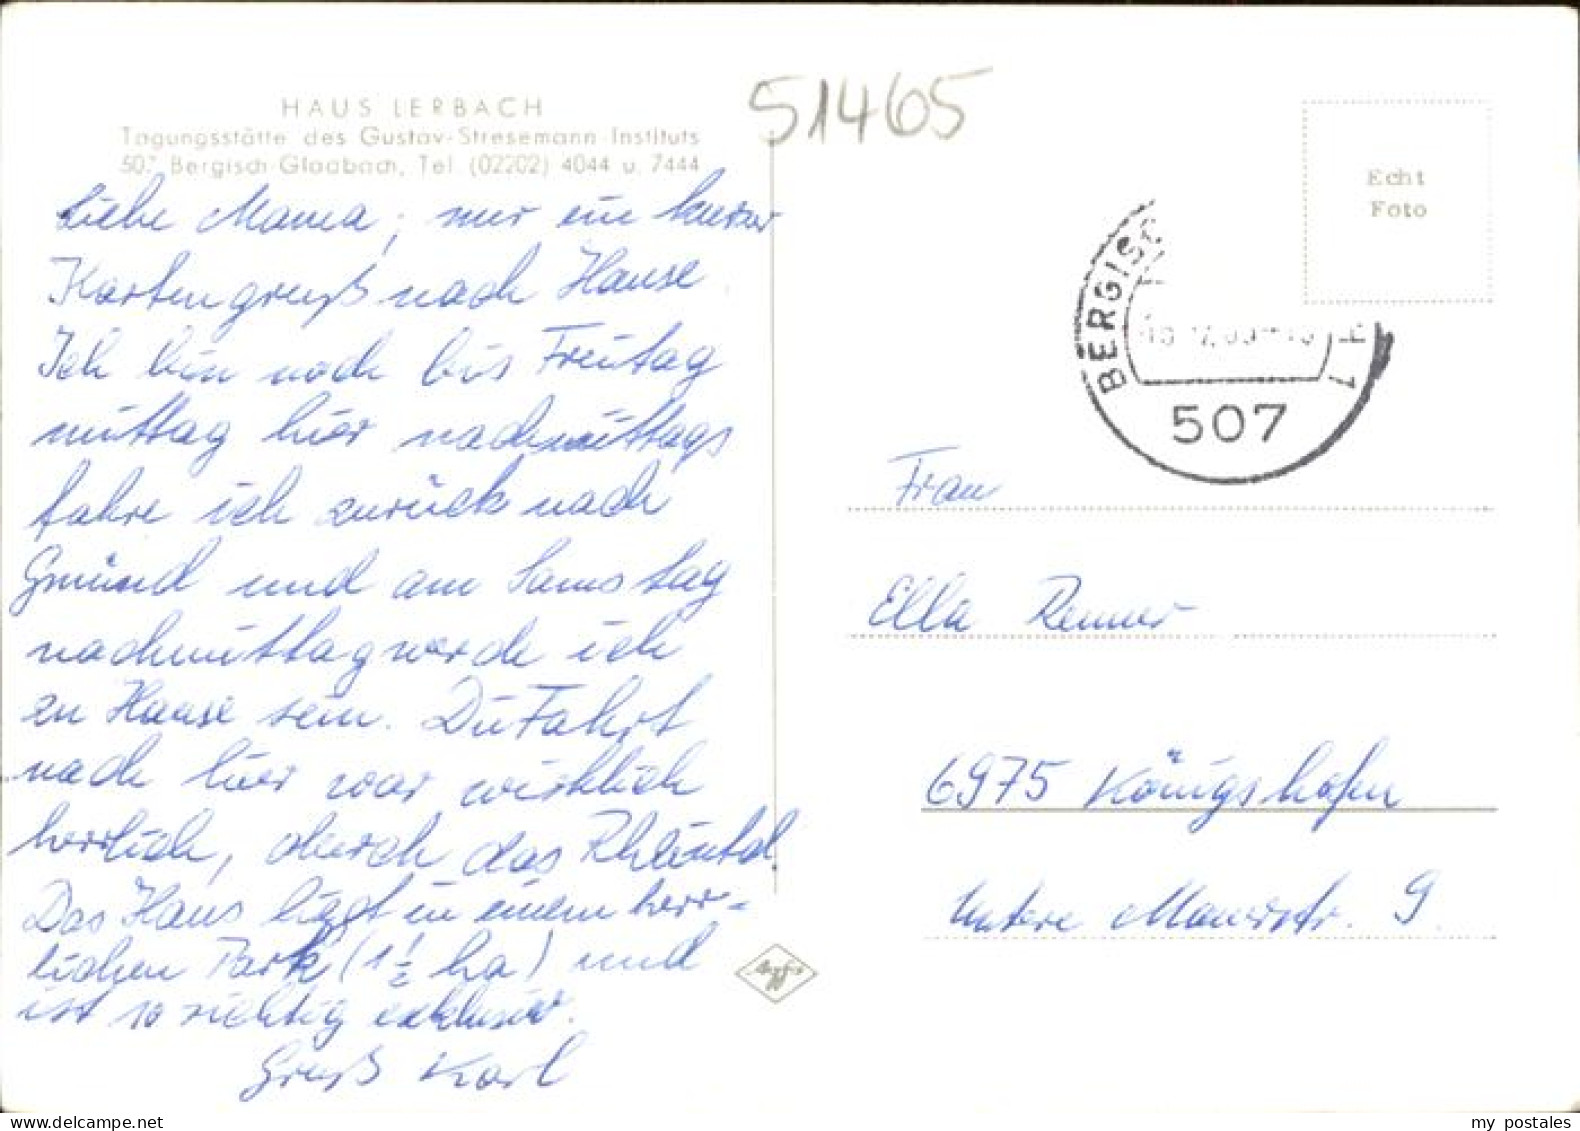 51465
HAUS LERBACH
Tagungsstätte des Gustav-Stresemann-Instituts
507 Bergisch-Gladbach, Tel. (02202) 4044 u. 7444
Liebe Mama, nur ein kurzer
Kartengruß nach Hause.
Ich bin noch bis Freitag
mittag hier nachmittags
fahre ich zurück nach
Gmünd und am Samstag
nachmittag werde ich
zu Hause sein. Die Fahrt
nach hier war wirklich
herrlich, durch das Rheintal.
Das Haus liegt in einem herr-
lichen Park (1 1/2 ha) und
ist so richtig exklusiv.
Gruß Karl
Echt
Foto
BERGISC
507
Frau
Ella Renner
6975 Königshofen
Untere Mauerstr. 9.
Agfa
my postales